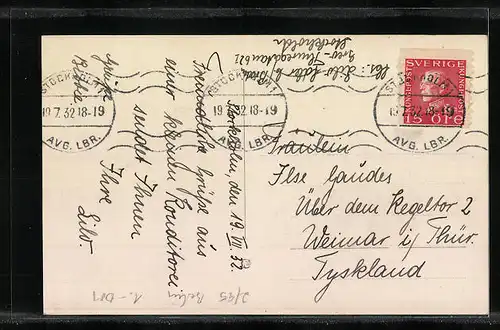 Stockholm, den 19. VII. 32.
Freundliche Grüße aus
einer kleinen Konditorei
sendet Ihnen
Ihre
Lilo.
Grüße
Abs.: Lilo
Stockholm
STOCKHOLM 1
19.7.32.18-19
AVG. LBR.
STOCKHOLM 1
19.7.32.18-19
AVG. LBR.
STOCKHOLM 1
19.7.32.18-19
AVG. LBR.
SVERIGE
15 ÖRE
Fräulein
Ilse Gaudes
Über dem Kegeltor 2
Weimar i/Thür.
Tyskland